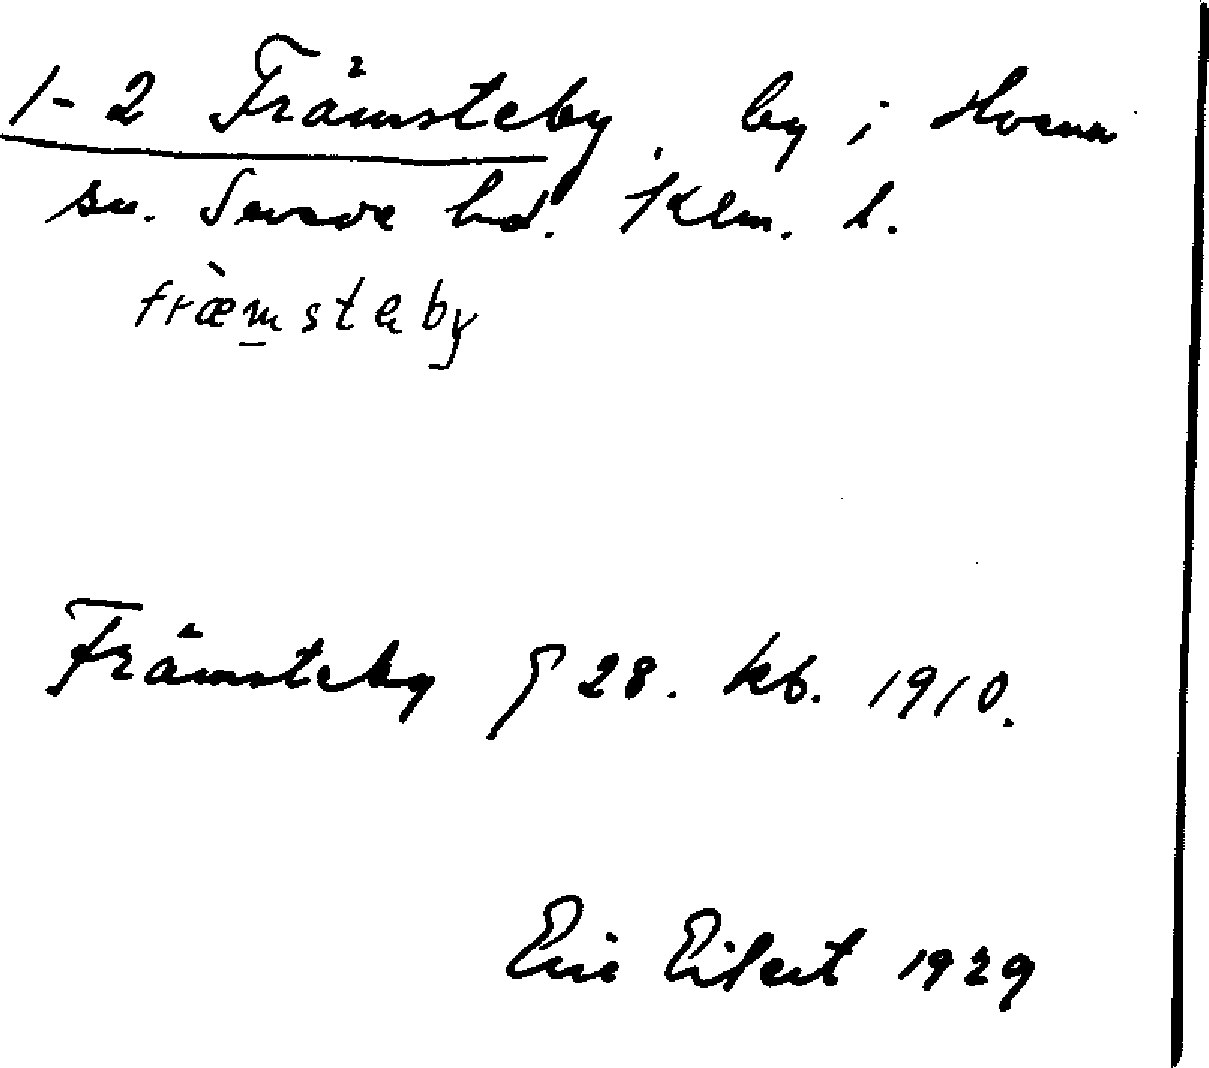 1-2 Främsteby, by i Hossna
sn. Sevede hd. Klm. l.
fræ̀msteby
Främsteby § 28. kb. 1910.
Eric Elfert 1929